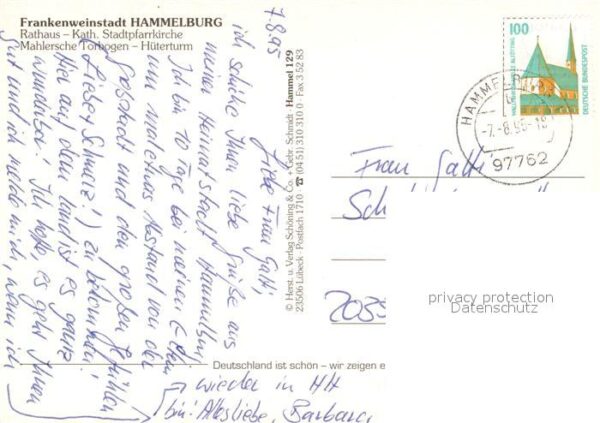 Frankenweinstadt HAMMELBURG
Rathaus – Kath. Stadtpfarrkirche
Mahlersche Torbogen – Hüterturm
7.8.95
Liebe Frau Gatti,
ich schicke Ihnen liebe Grüße aus
meiner Heimatstadt Hammelburg
Ich bin 10 Tage bei meinen Eltern
um mal etwas Abstand von der
Großstadt und den großen Gefühlen
(Liebe + Schmerz!) zu bekommen,
hier auf dem Land ist es ganz
wunderbar! Ich hoffe, es geht Ihnen
gut und ich melde mich, wenn ich
wieder in HH
bin! Alles Liebe, Barbara
© Herst. u. Verlag Schöning & Co. + Gebr. Schmidt Hammel 129
23506 Lübeck - Postfach 1710 ☎ (04 51) 310 310 0 - Fax 3 52 83
Deutschland ist schön – wir zeigen e
100
DEUTSCHE BUNDESPOST
HAMMEL
-7.-8.95-18
97762
Frau Gatti
privacy protection
Datenschutz